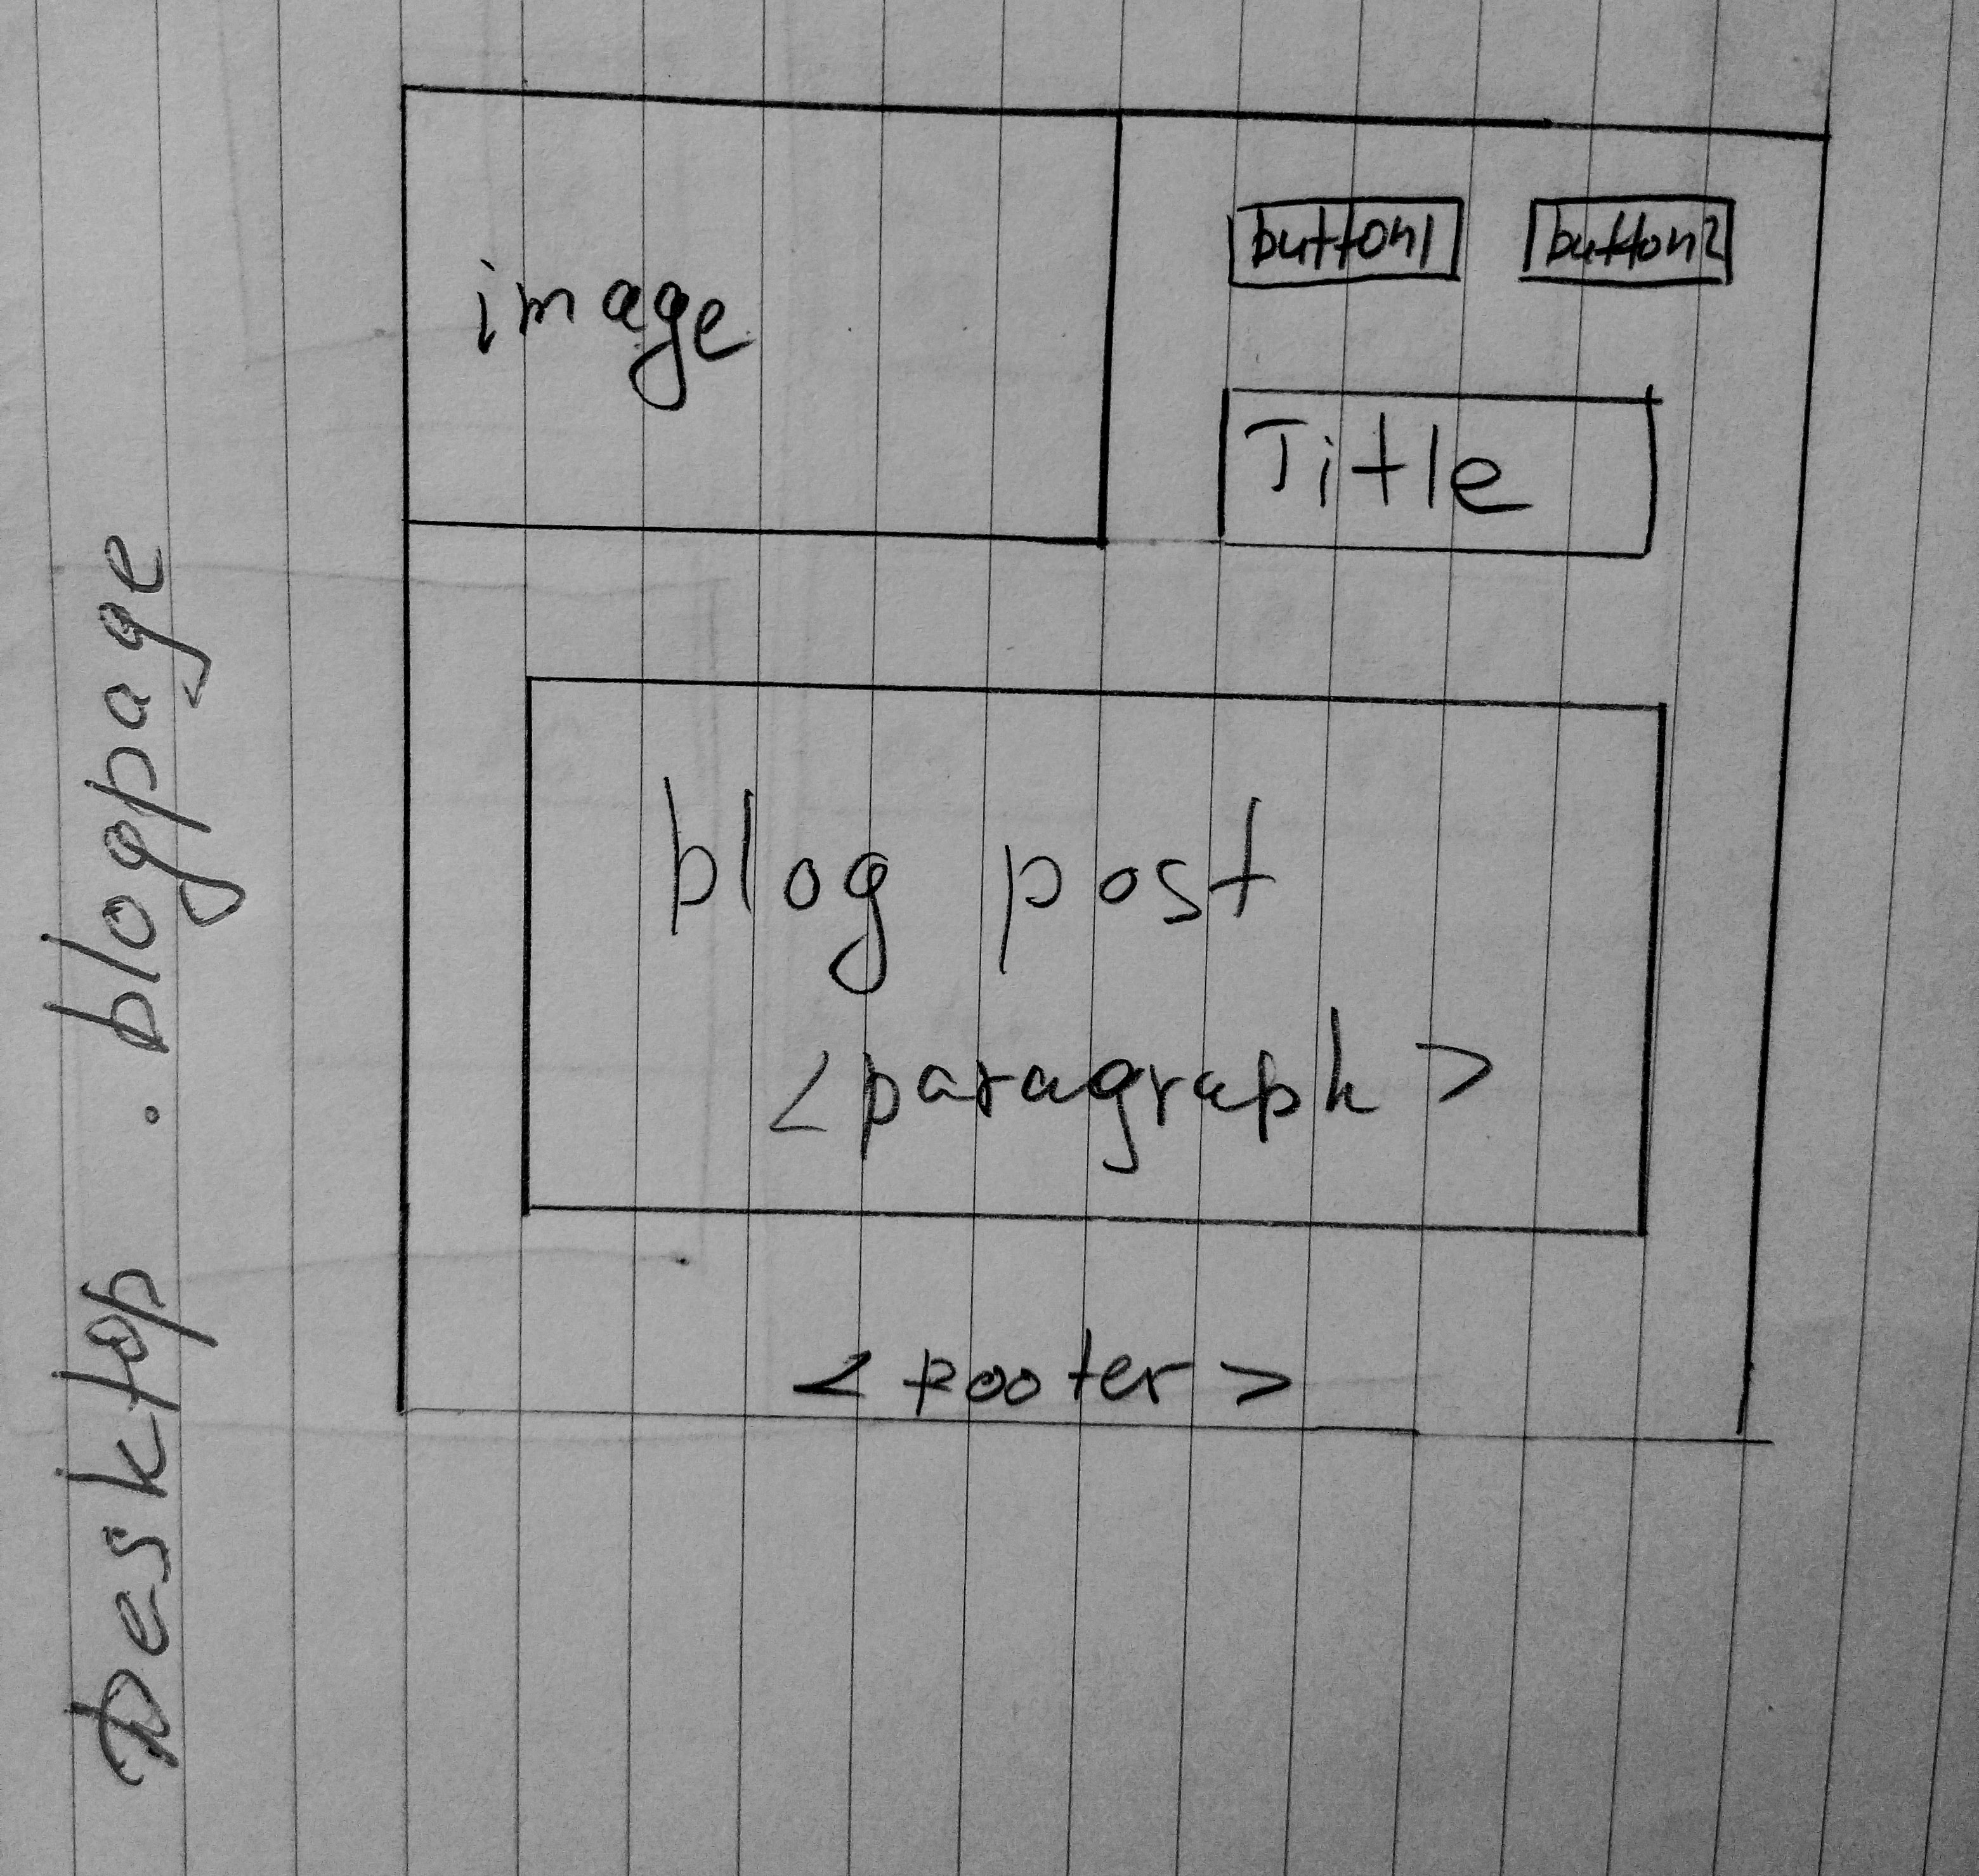 Desktop . blogpage
image
button1 button2
Title
blog post
<paragraph>
<footer>